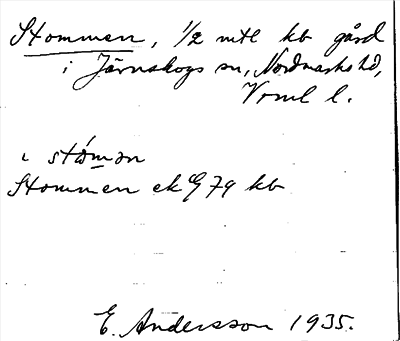 Stommen, 1/2 mtl kb gård
i Järnskogs sn, Nordmarks hd,
Vrml l.
i stómən
Stommen ek G 79 kb
E. Andersson 1935.